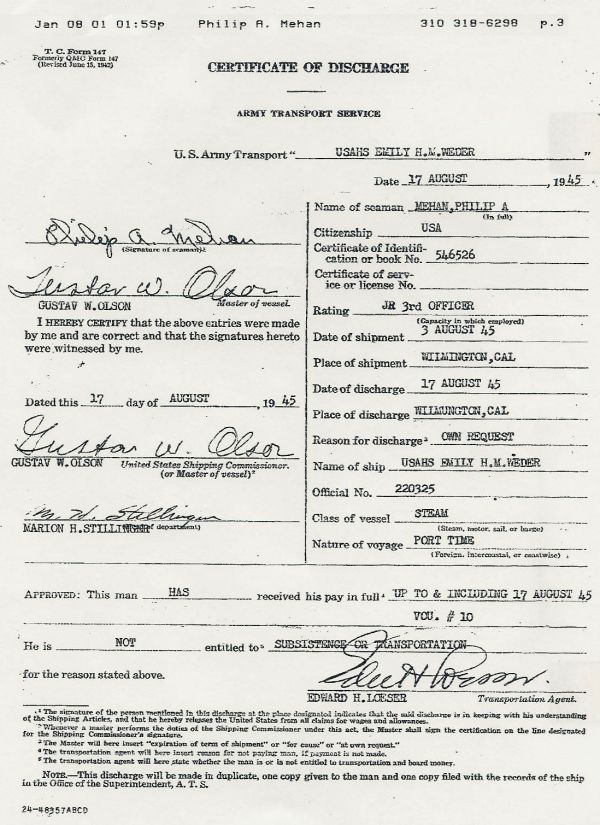 Jan 08 01 01:59p Philip A. Mehan 310 318-6298 p.3
T. C. Form 147
Formerly QMC Form 147
(Revised June 15, 1942)
CERTIFICATE OF DISCHARGE
ARMY TRANSPORT SERVICE
U. S. Army Transport " USAHS EMILY H.M.WEDER "
Date 17 AUGUST , 1945
Philip A. Mehan
(Signature of seaman)¹
Gustav W. Olson
GUSTAV W.OLSON Master of vessel.
I HEREBY CERTIFY that the above entries were made
by me and are correct and that the signatures hereto
were witnessed by me.
Dated this 17 day of AUGUST , 1945
Gustav W. Olson
GUSTAV W.OLSON United States Shipping Commissioner.
(or Master of vessel)²
M. H. Stillinger
MARION H.STILLINGER department)
Name of seaman MEHAN,PHILIP A
(In full)
Citizenship USA
Certificate of Identifi-
cation or book No. 546526
Certificate of serv-
ice or license No.
Rating JR 3rd OFFICER
(Capacity in which employed)
Date of shipment 3 AUGUST 45
Place of shipment WILMINGTON,CAL
Date of discharge 17 AUGUST 45
Place of discharge WILMUNGTON,CAL
Reason for discharge³ OWN REQUEST
Name of ship USAHS EMILY H.M.WEDER
Official No. 220325
Class of vessel STEAM
(Steam, motor, sail, or barge)
Nature of voyage PORT TIME
(Foreign, intercoastal, or coastwise)
APPROVED: This man HAS received his pay in full⁴ UP TO & INCLUDING 17 AUGUST 45
VOU. # 10
He is NOT entitled to⁵ SUBSISTENCE OR TRANSPORTATION
for the reason stated above.
Edw H Loeser.
EDWARD H.LOESER Transportation Agent.
¹ The signature of the person mentioned in this discharge at the place designated indicates that the said discharge is in keeping with his understanding
of the Shipping Articles, and that he hereby releases the United States from all claims for wages and allowances.
² Whenever a master performs the duties of the Shipping Commissioner under this act, the Master shall sign the certification on the line designated
for the Shipping Commissioner's signature.
³ The Master will here insert "expiration of term of shipment" or "for cause" or "at own request."
⁴ The transportation agent will here insert reason for not paying man, if payment is not made.
⁵ The transportation agent will here state whether the man is or is not entitled to transportation and board money.
NOTE.—This discharge will be made in duplicate, one copy given to the man and one copy filed with the records of the ship
in the Office of the Superintendent, A. T. S.
24-48357ABCD